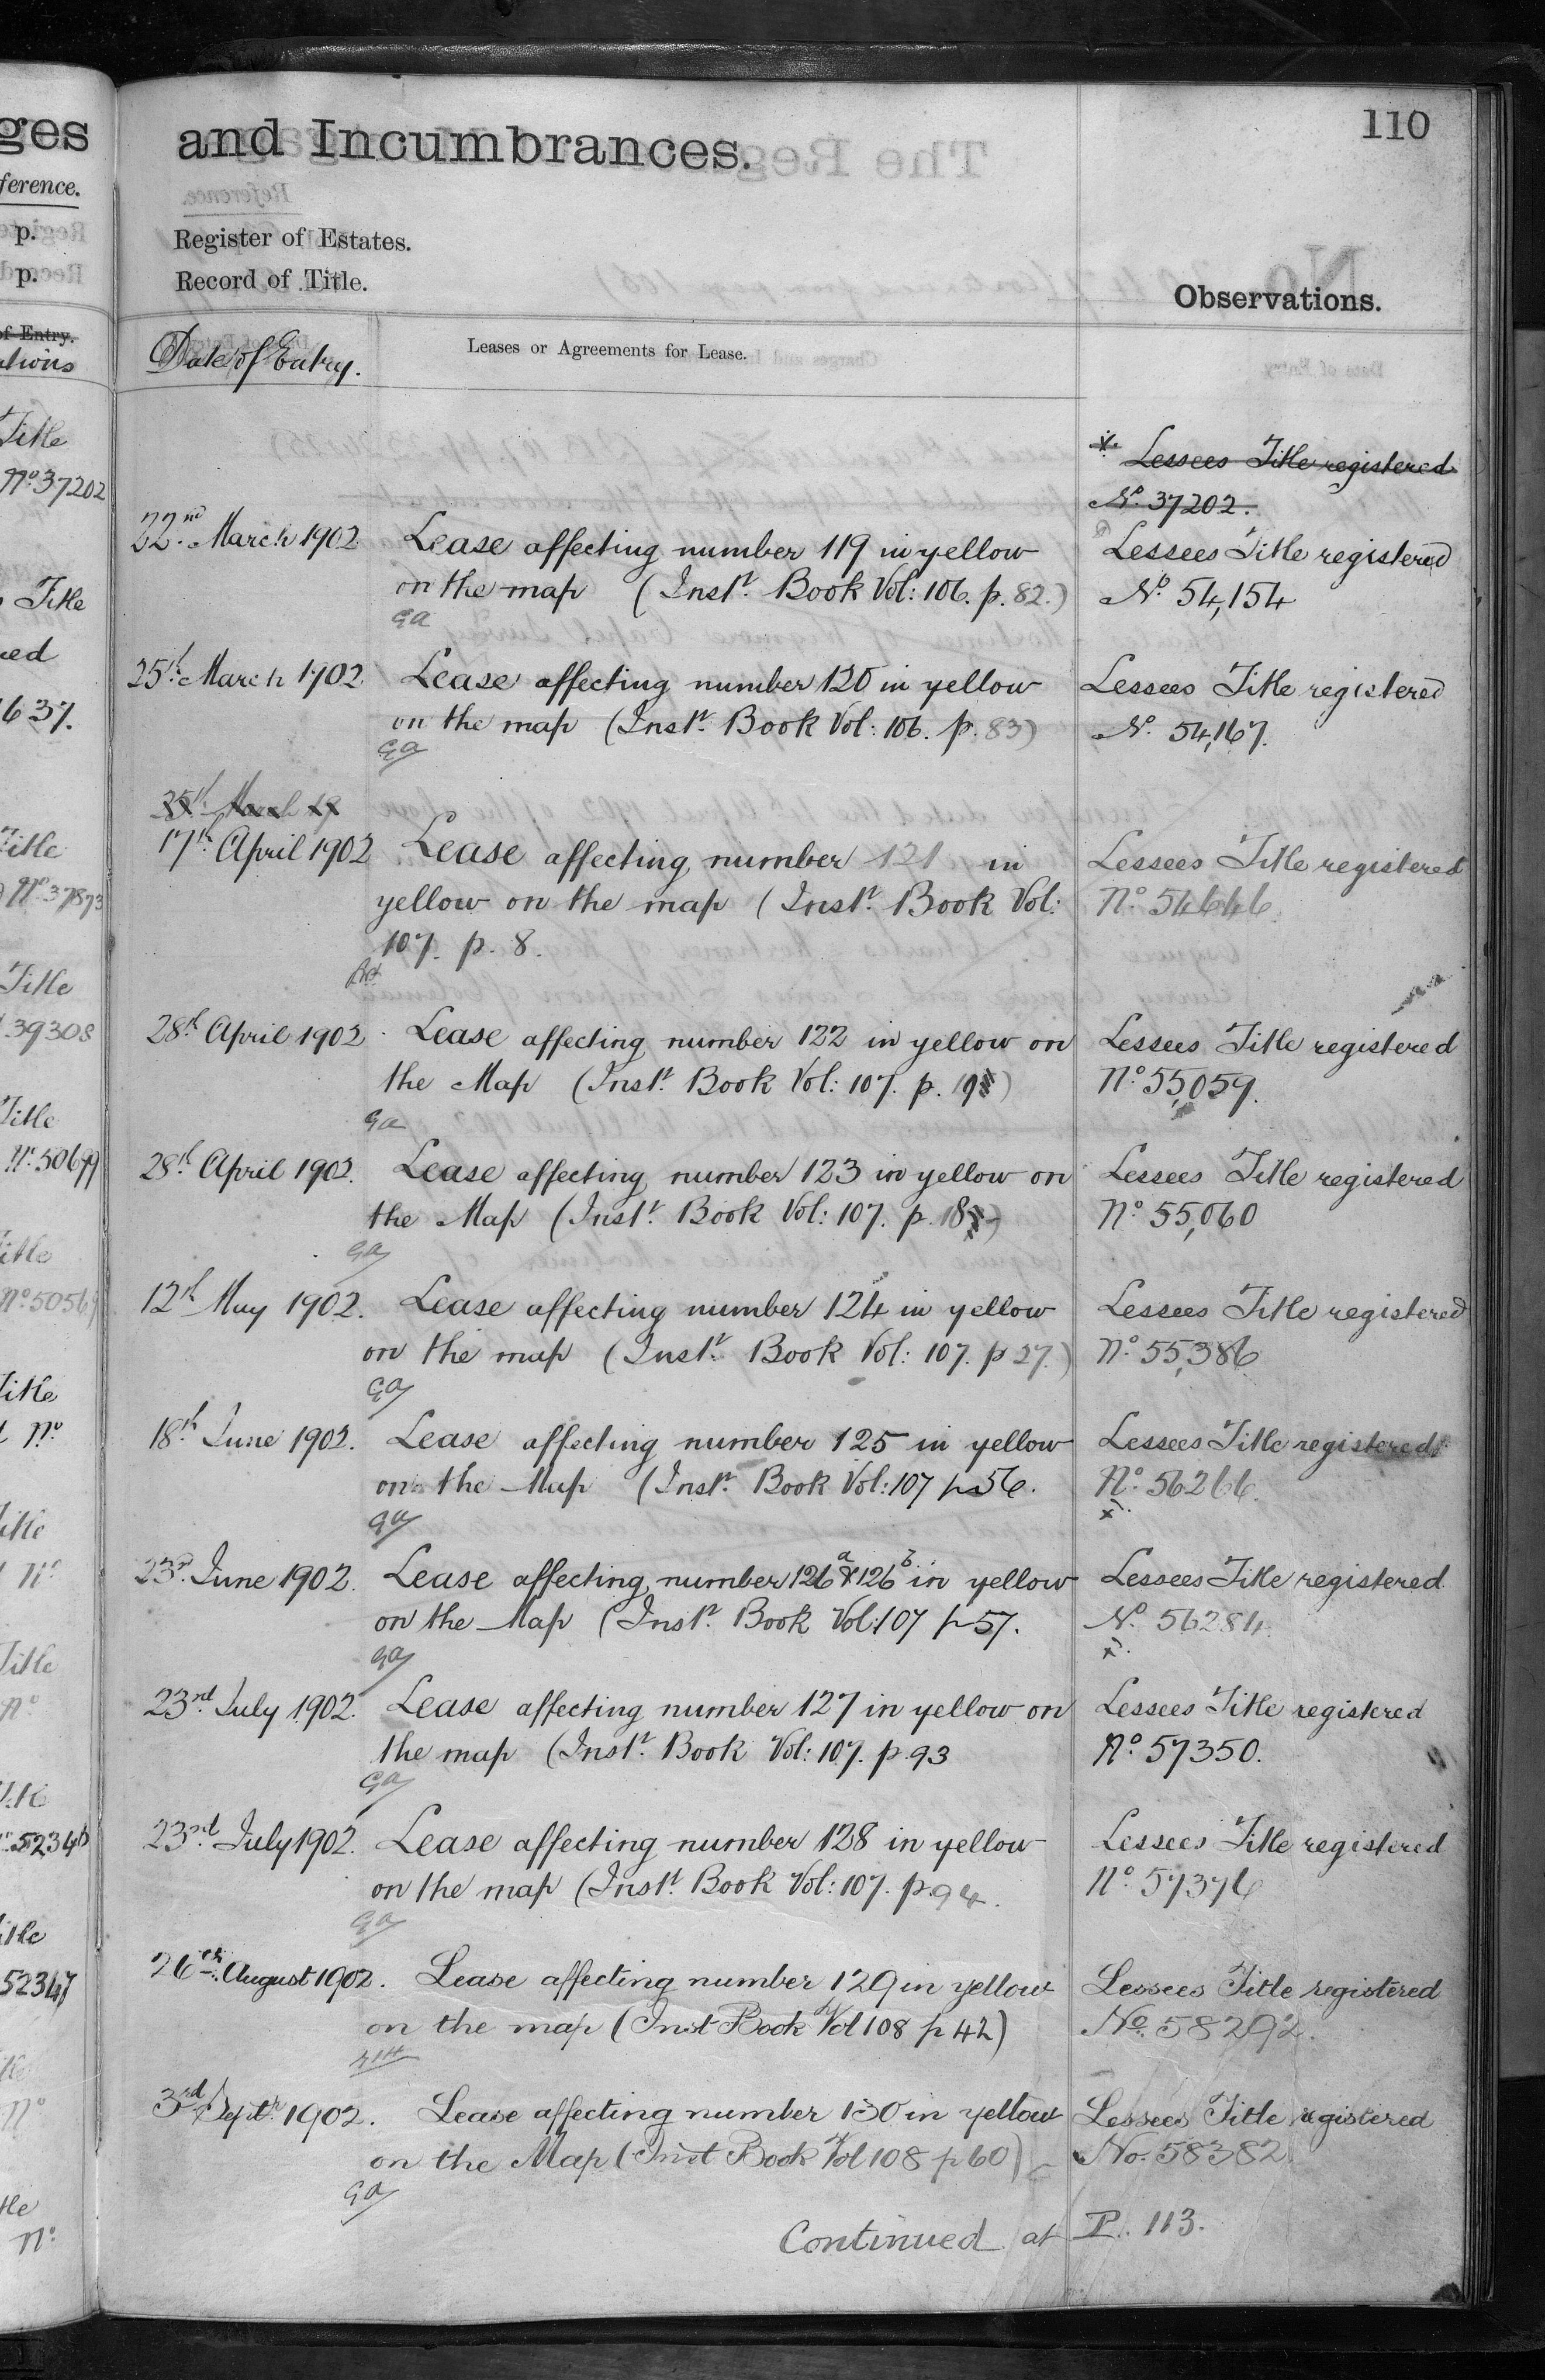 ges
ference.
p.
p.
of Entry.
Title
No 37202
Title
637.
Title
No 37873
Title
39308
Title
No 50679
Title
No
52346
52347
and Incumbrances.
110
Register of Estates.
Record of Title.
Observations.
Date of Entry.
Leases or Agreements for Lease.
x Lessees Title registered
No. 37202.
22nd March 1902 Lease affecting number 119 in yellow Lessees Title registered
on the map (Instt. Book Vol: 106. p. 82.) No. 54,154
GA
25th March 1902 Lease affecting number 120 in yellow Lessees Title registered
on the map (Instt. Book Vol: 106. p. 83) No. 54,167.
GA
25th March 19
17th April 1902 Lease affecting number 121 in Lessees Title registered
yellow on the map (Instt. Book Vol: No. 54646
107. p. 8.
28th April 1902 Lease affecting number 122 in yellow on Lessees Title registered
the Map (Instt. Book Vol: 107. p. 19) No. 55,059.
GA
28th April 1902. Lease affecting number 123 in yellow on Lessees Title registered
the Map (Instt. Book Vol: 107. p. 18) No. 55,060
GA
12th May 1902. Lease affecting number 124 in yellow Lessees Title registered
on the map (Instt. Book Vol: 107. p 27.) No. 55,386
GA
18th June 1902. Lease affecting number 125 in yellow Lessees Title registered
on the Map (Instt. Book Vol: 107 p 56. No. 56266.
GA x.
23rd June 1902. Lease affecting number 126a & 126b in yellow Lessees Title registered
on the Map (Instt. Book Vol: 107 p 57. No. 56284.
GA x.
23rd July 1902. Lease affecting number 127 in yellow on Lessees Title registered
the map (Instt. Book Vol: 107. p. 93 No. 57350.
GA
23rd July 1902. Lease affecting number 128 in yellow Lessees Title registered
on the map (Instt. Book Vol: 107. p. 94. No. 57376
GA
26th August 1902. Lease affecting number 129 in yellow Lessees Title registered
on the map (Inst Book Vol 108 p 42) No. 58292.
3rd Septr 1902. Lease affecting number 130 in yellow Lessees Title registered
on the Map (Inst Book Vol 108 p 60) No. 58382
GA
Continued at P. 113.